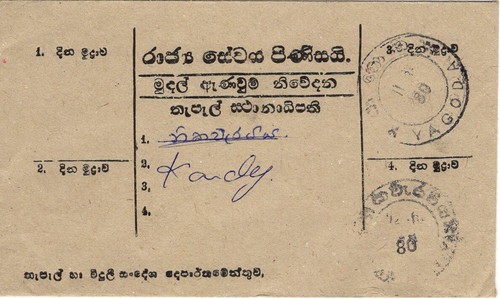 1. දින මුද්‍රාව
රාජ්‍ය සේවය පිණිසයි.
3. දින මුද්‍රාව
මුදල් ඇණවුම් නිවේදන
තැපැල් ස්ථානාධිපති
1. නිකවැරටිය.
2. Kandy.
3.
4.
2. දින මුද්‍රාව
4. දින මුද්‍රාව
YAGODA
89
80
තැපැල් හා විදුලි සංදේශ දෙපාර්තමේන්තුව.